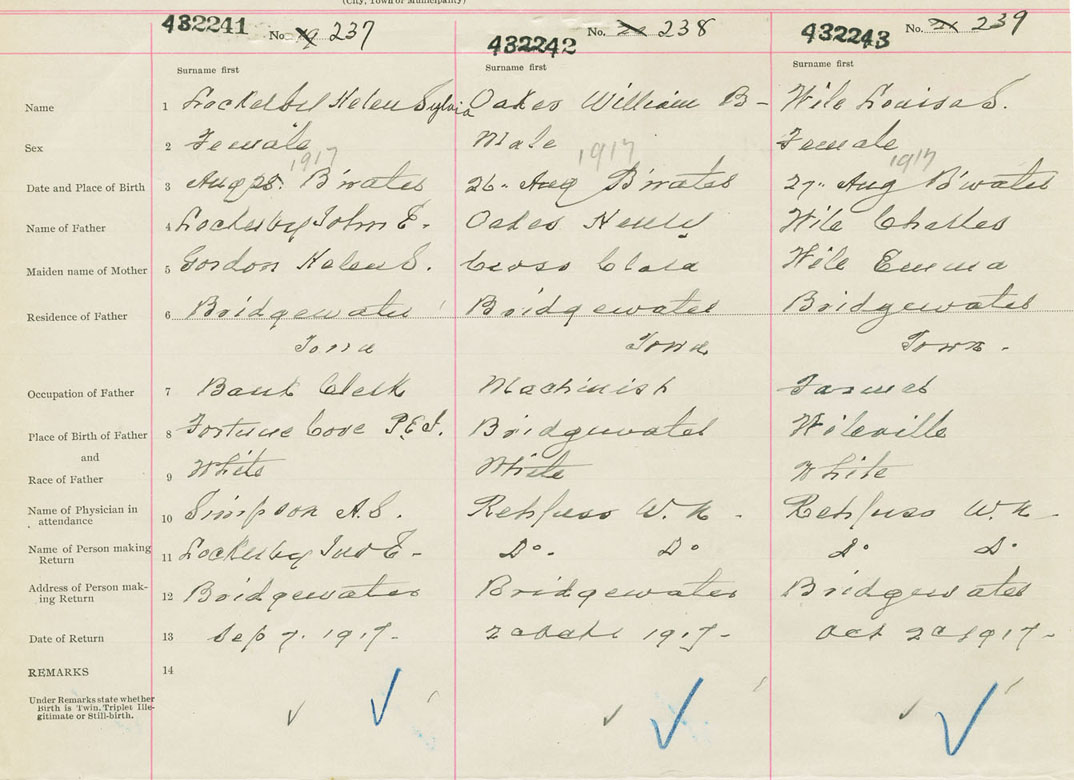 (City, Town or Municipality)
432241 No. 19 237 432242 No. 238 432243 No. 239
Surname first Surname first Surname first
Name 1 Lockerby Helen Sylvia Oakes William B- Wile Louisa S.
Sex 2 Female Male Female
1917 1917 1917
Date and Place of Birth 3 Aug 28. B'water 26" Aug B'water 27" Aug B'water
Name of Father 4 Lockerby John E. Oakes Henry Wile Charles
Maiden name of Mother 5 Gordon Helen S. Cross Clara Wile Emma
Residence of Father 6 Bridgewater Bridgewater Bridgewater
Town Town Town.
Occupation of Father 7 Bank Clerk Machinist Farmer
Place of Birth of Father 8 Fortune Cove P.E.I. Bridgewater Wileville
and
Race of Father 9 White White White
Name of Physician in attendance 10 Simpson A.S. Rehfuss W.N. Rehfuss W.N.
Name of Person making Return 11 Lockerby Jno E- Do. Do Do Do
Address of Person making Return 12 Bridgewater Bridgewater Bridgewater
Date of Return 13 Sep 7. 1917- 1917- Oct 2d 1917-
REMARKS 14
Under Remarks state whether
Birth is Twin, Triplet Ille-
gitimate or Still-birth.